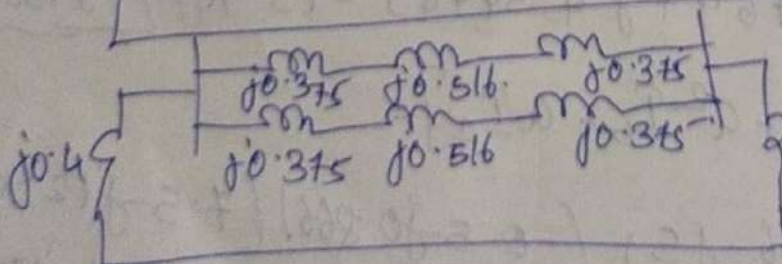 j0.375 j0.516. j0.375
j0.4 j0.375 j0.516 j0.375